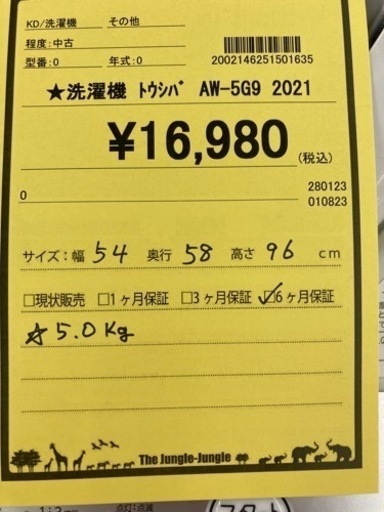 KD/洗濯機 その他
程度:中古
型番:0 年式:0
2002146251501635
★洗濯機 ﾄｳｼﾊﾞ AW-5G9 2021
¥16,980 (税込)
280123
0
010823
サイズ:幅 54 奥行 58 高さ 96 cm
□現状販売 □1ヶ月保証 □3ヶ月保証 ☑6ヶ月保証
☆5.0Kg
The Jungle-Jungle
スタート